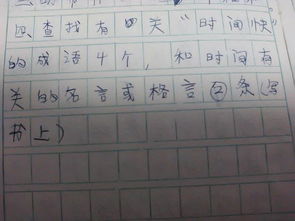 四查找有关“时间快”
的成语4个,和时间有
关的名言或格言②条(写
书上)